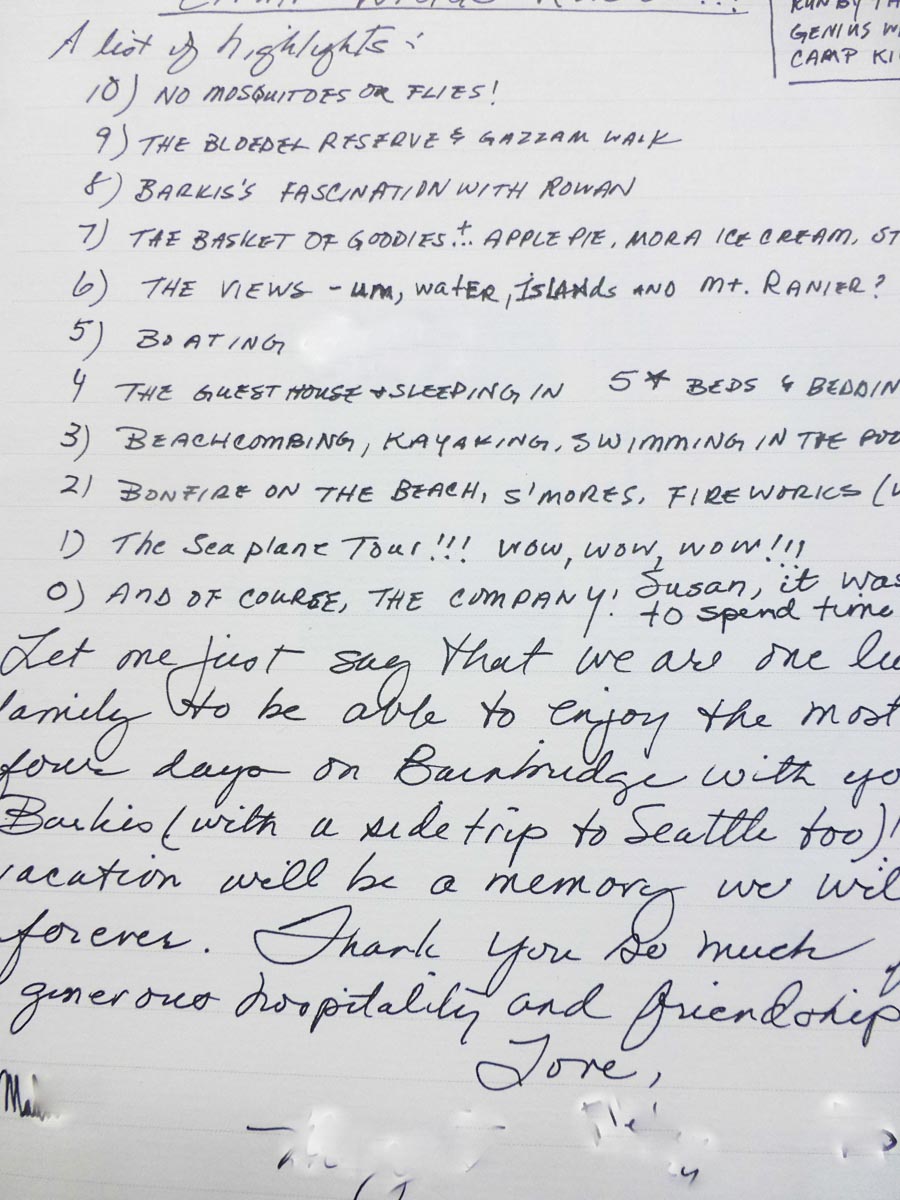 RUN BY
GENIUS
CAMP
A list of highlights:
10) NO MOSQUITOES OR FLIES!
9) THE BLOEDEL RESERVE & GAZZAM WALK
8) BARKIS'S FASCINATION WITH ROWAN
7) THE BASKET OF GOODIES!! APPLE PIE, MORA ICE CREAM, ST
6) THE VIEWS - um, water, islands AND Mt. RANIER?
5) BOATING
4 THE GUEST HOUSE & SLEEPING IN 5* BEDS & BEDDIN
3) BEACHCOMBING, KAYAKING, SWIMMING IN THE POO
2) BONFIRE ON THE BEACH, S'MORES, FIREWORKS (
1) The Seaplane Tour!!! WOW, WOW, WOW!!!
0) AND OF COURSE, THE COMPANY! Susan, it was
to spend time
Let me just say that we are one lu
family to be able to enjoy the most
four days on Bainbridge with yo
Barkis (with a side trip to Seattle too)!
vacation will be a memory we wil
forever. Thank you so much f
generous hospitality and friendship
Love,